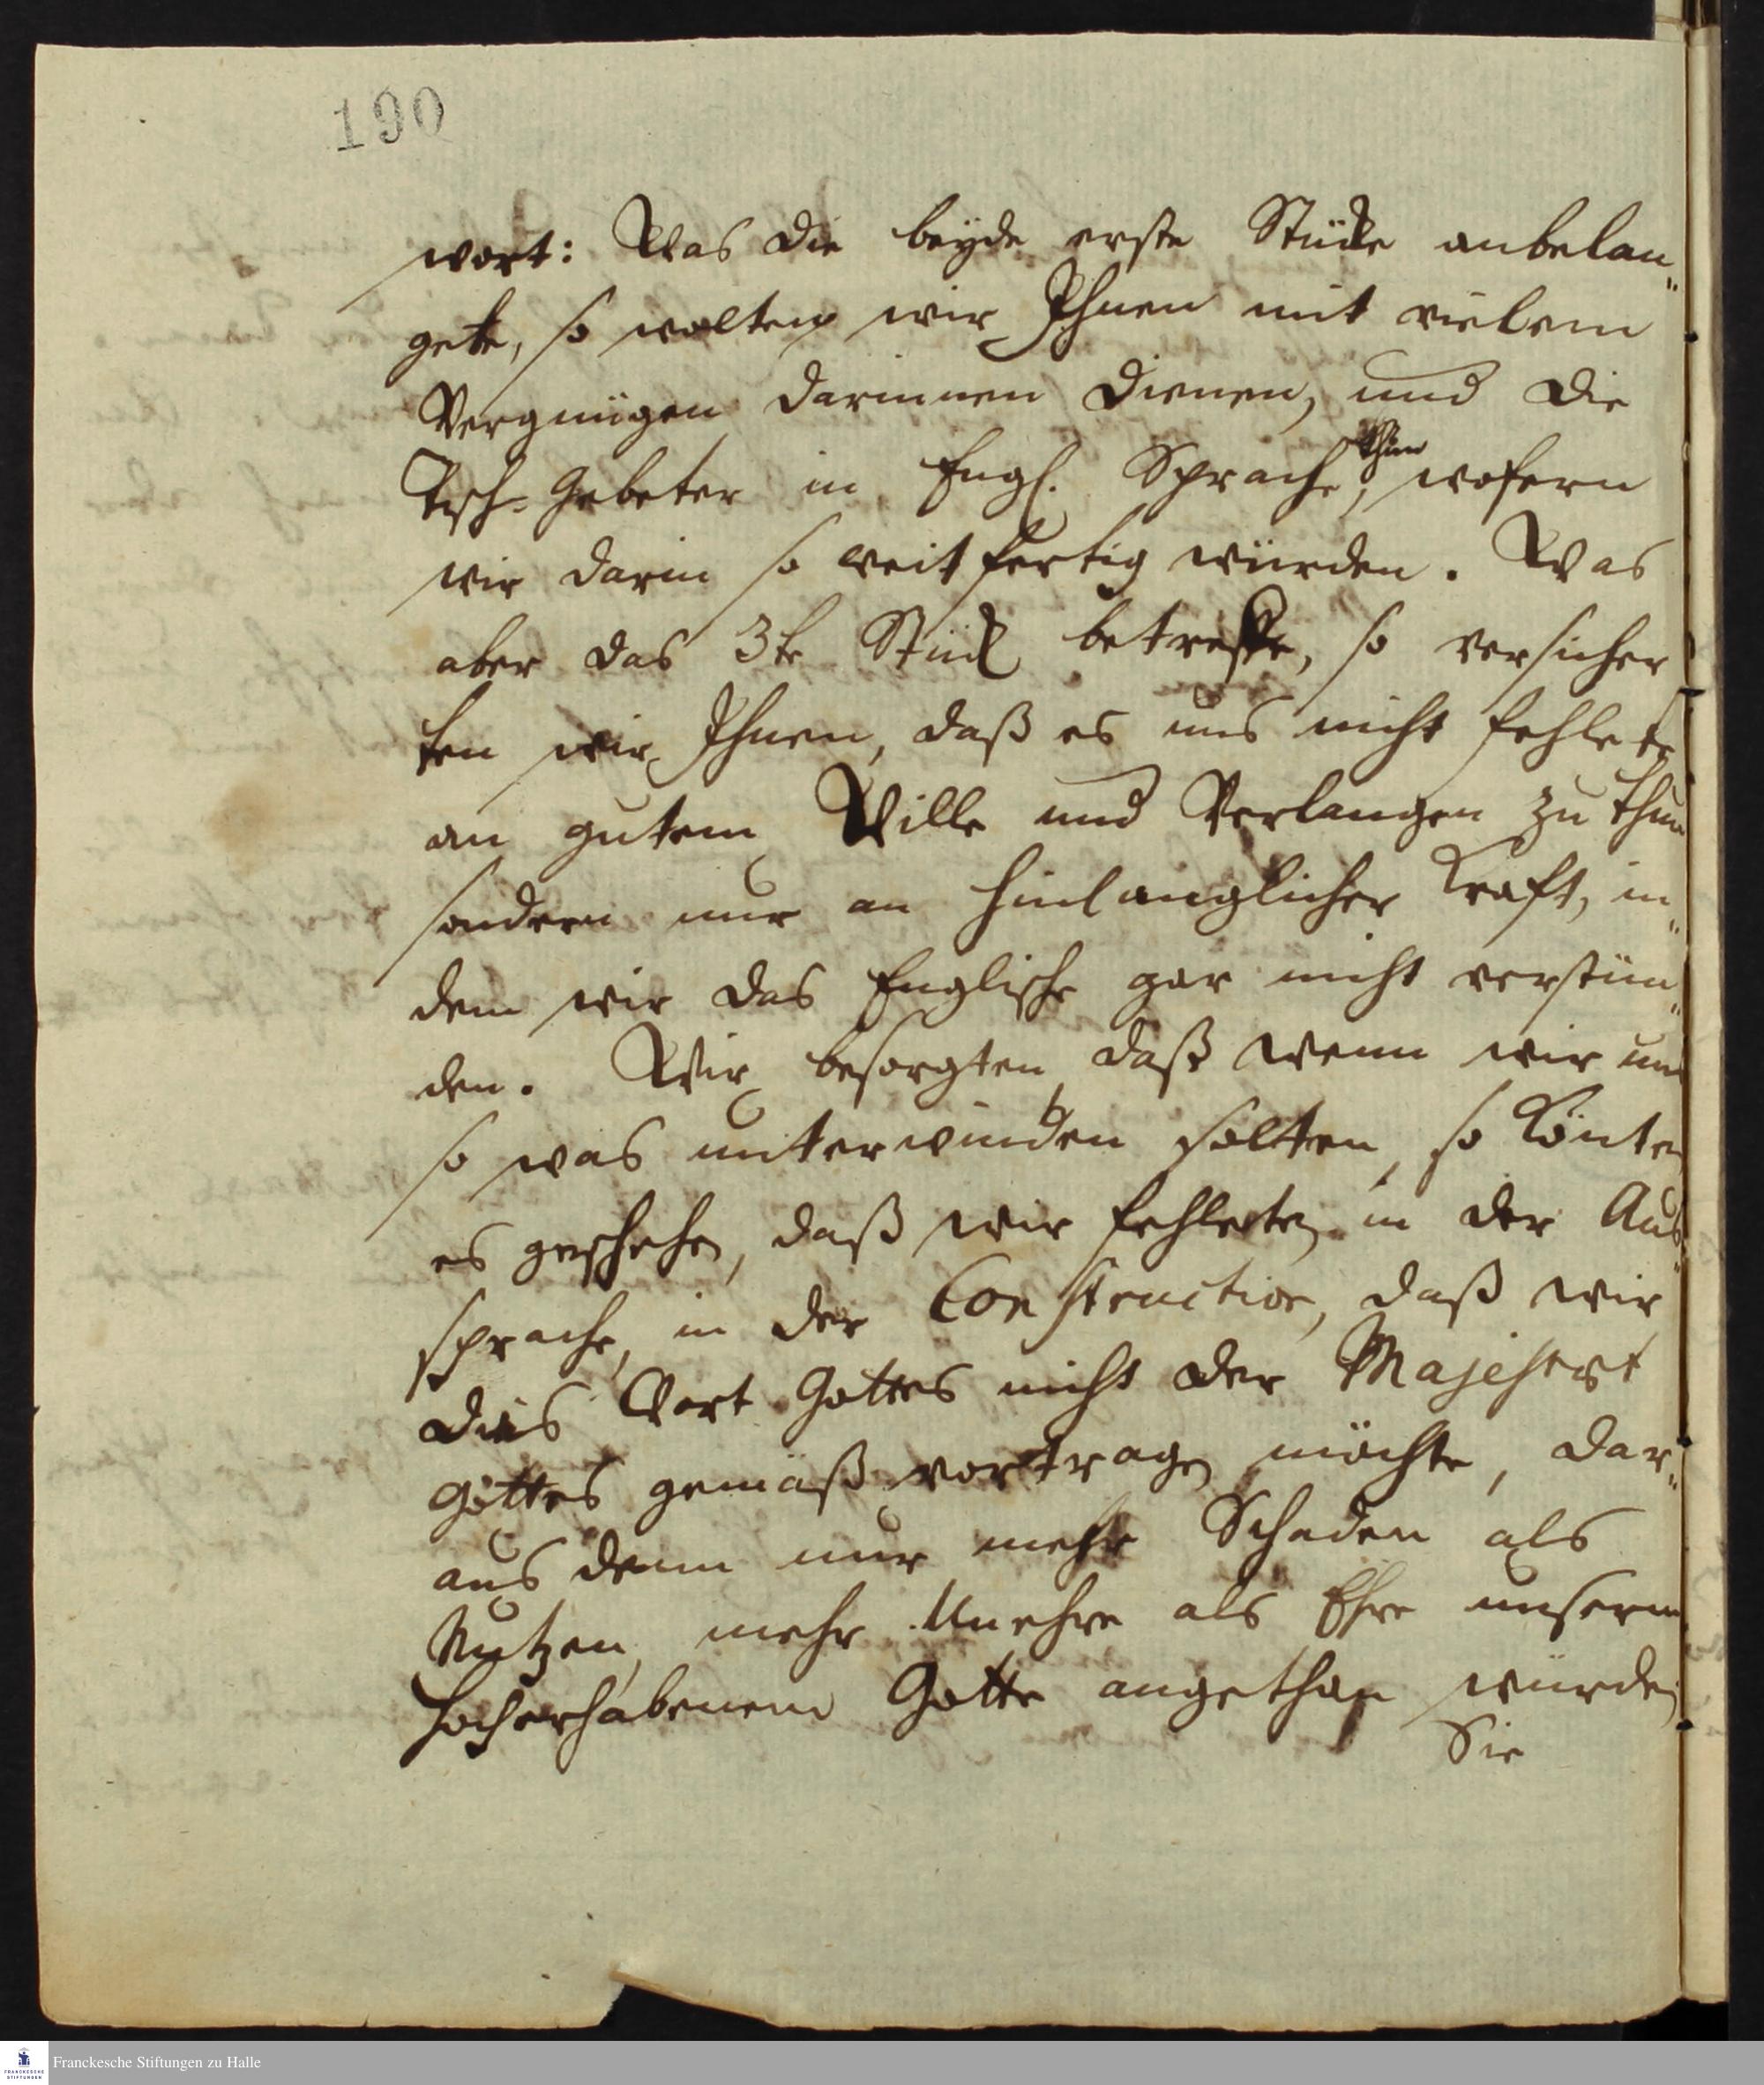 190
wort: Was die beyde erste Stücke anbelan„
gete, so wolten wir Ihnen mit vielem
Vergnügen darinnen dienen, und die
Tisch-Gebeter in Engl. Sprache thun, wofern
wir darin so weit fertig würden. Was
aber das 3te Stück betreffe, so versicher
ten wir Ihnen, daß es uns nicht fehlete
an gutem Wille und Verlangen zu thun
sondern nur an hinlanglicher Kraft, in„
dem wir das Englische gar nicht verstün„
den. Wir besorgten, daß wenn wir uns
so was unterwinden solten, so könte
es geschehe, daß wir fehlete in der Aus„
sprache, in der Construction, daß wir
das Wort Gottes nicht der Majestät
Gottes gemäß vortragen möchte, dar„
aus denn nur mehr Schaden als
Nutzen, mehr Unehre als Ehre unserm
hocherhabenem Gotte angethan würde,
Sie
Franckesche Stiftungen zu Halle
FRANCKESCHE
STIFTUNGEN